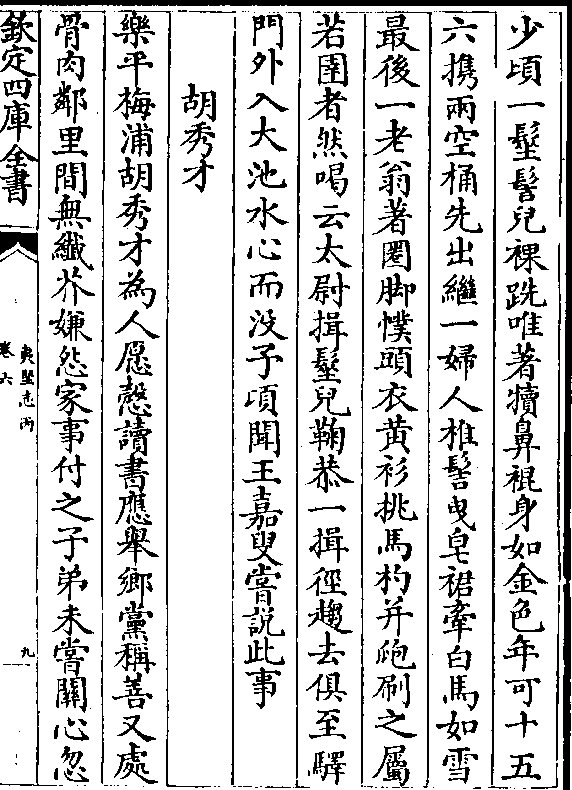 少頃一髽髻兒裸跣唯著犢鼻裩身如金色年可十五
六携兩空桶先出繼一婦人椎髻曵皂裙牽白馬如雪
最後一老翁著圏脚幞頭衣黄衫挑馬杓并𤬪刷之屬
若圉者然喝云太尉揖髽兒鞠恭一揖徑趨去俱至驛
門外入大池水心而没予頃聞王嘉叟嘗説此事
胡秀才
樂平梅浦胡秀才為人愿慤讀書應舉鄉黨稱善又處
骨肉鄰里間無纎芥嫌怨家事付之子弟未嘗關心忽
欽定四庫全書
夷堅志丙
卷六
九